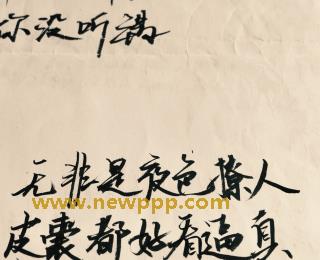 你没听满
无非是夜色撩人
www.newppp.com
皮囊都好看逼真